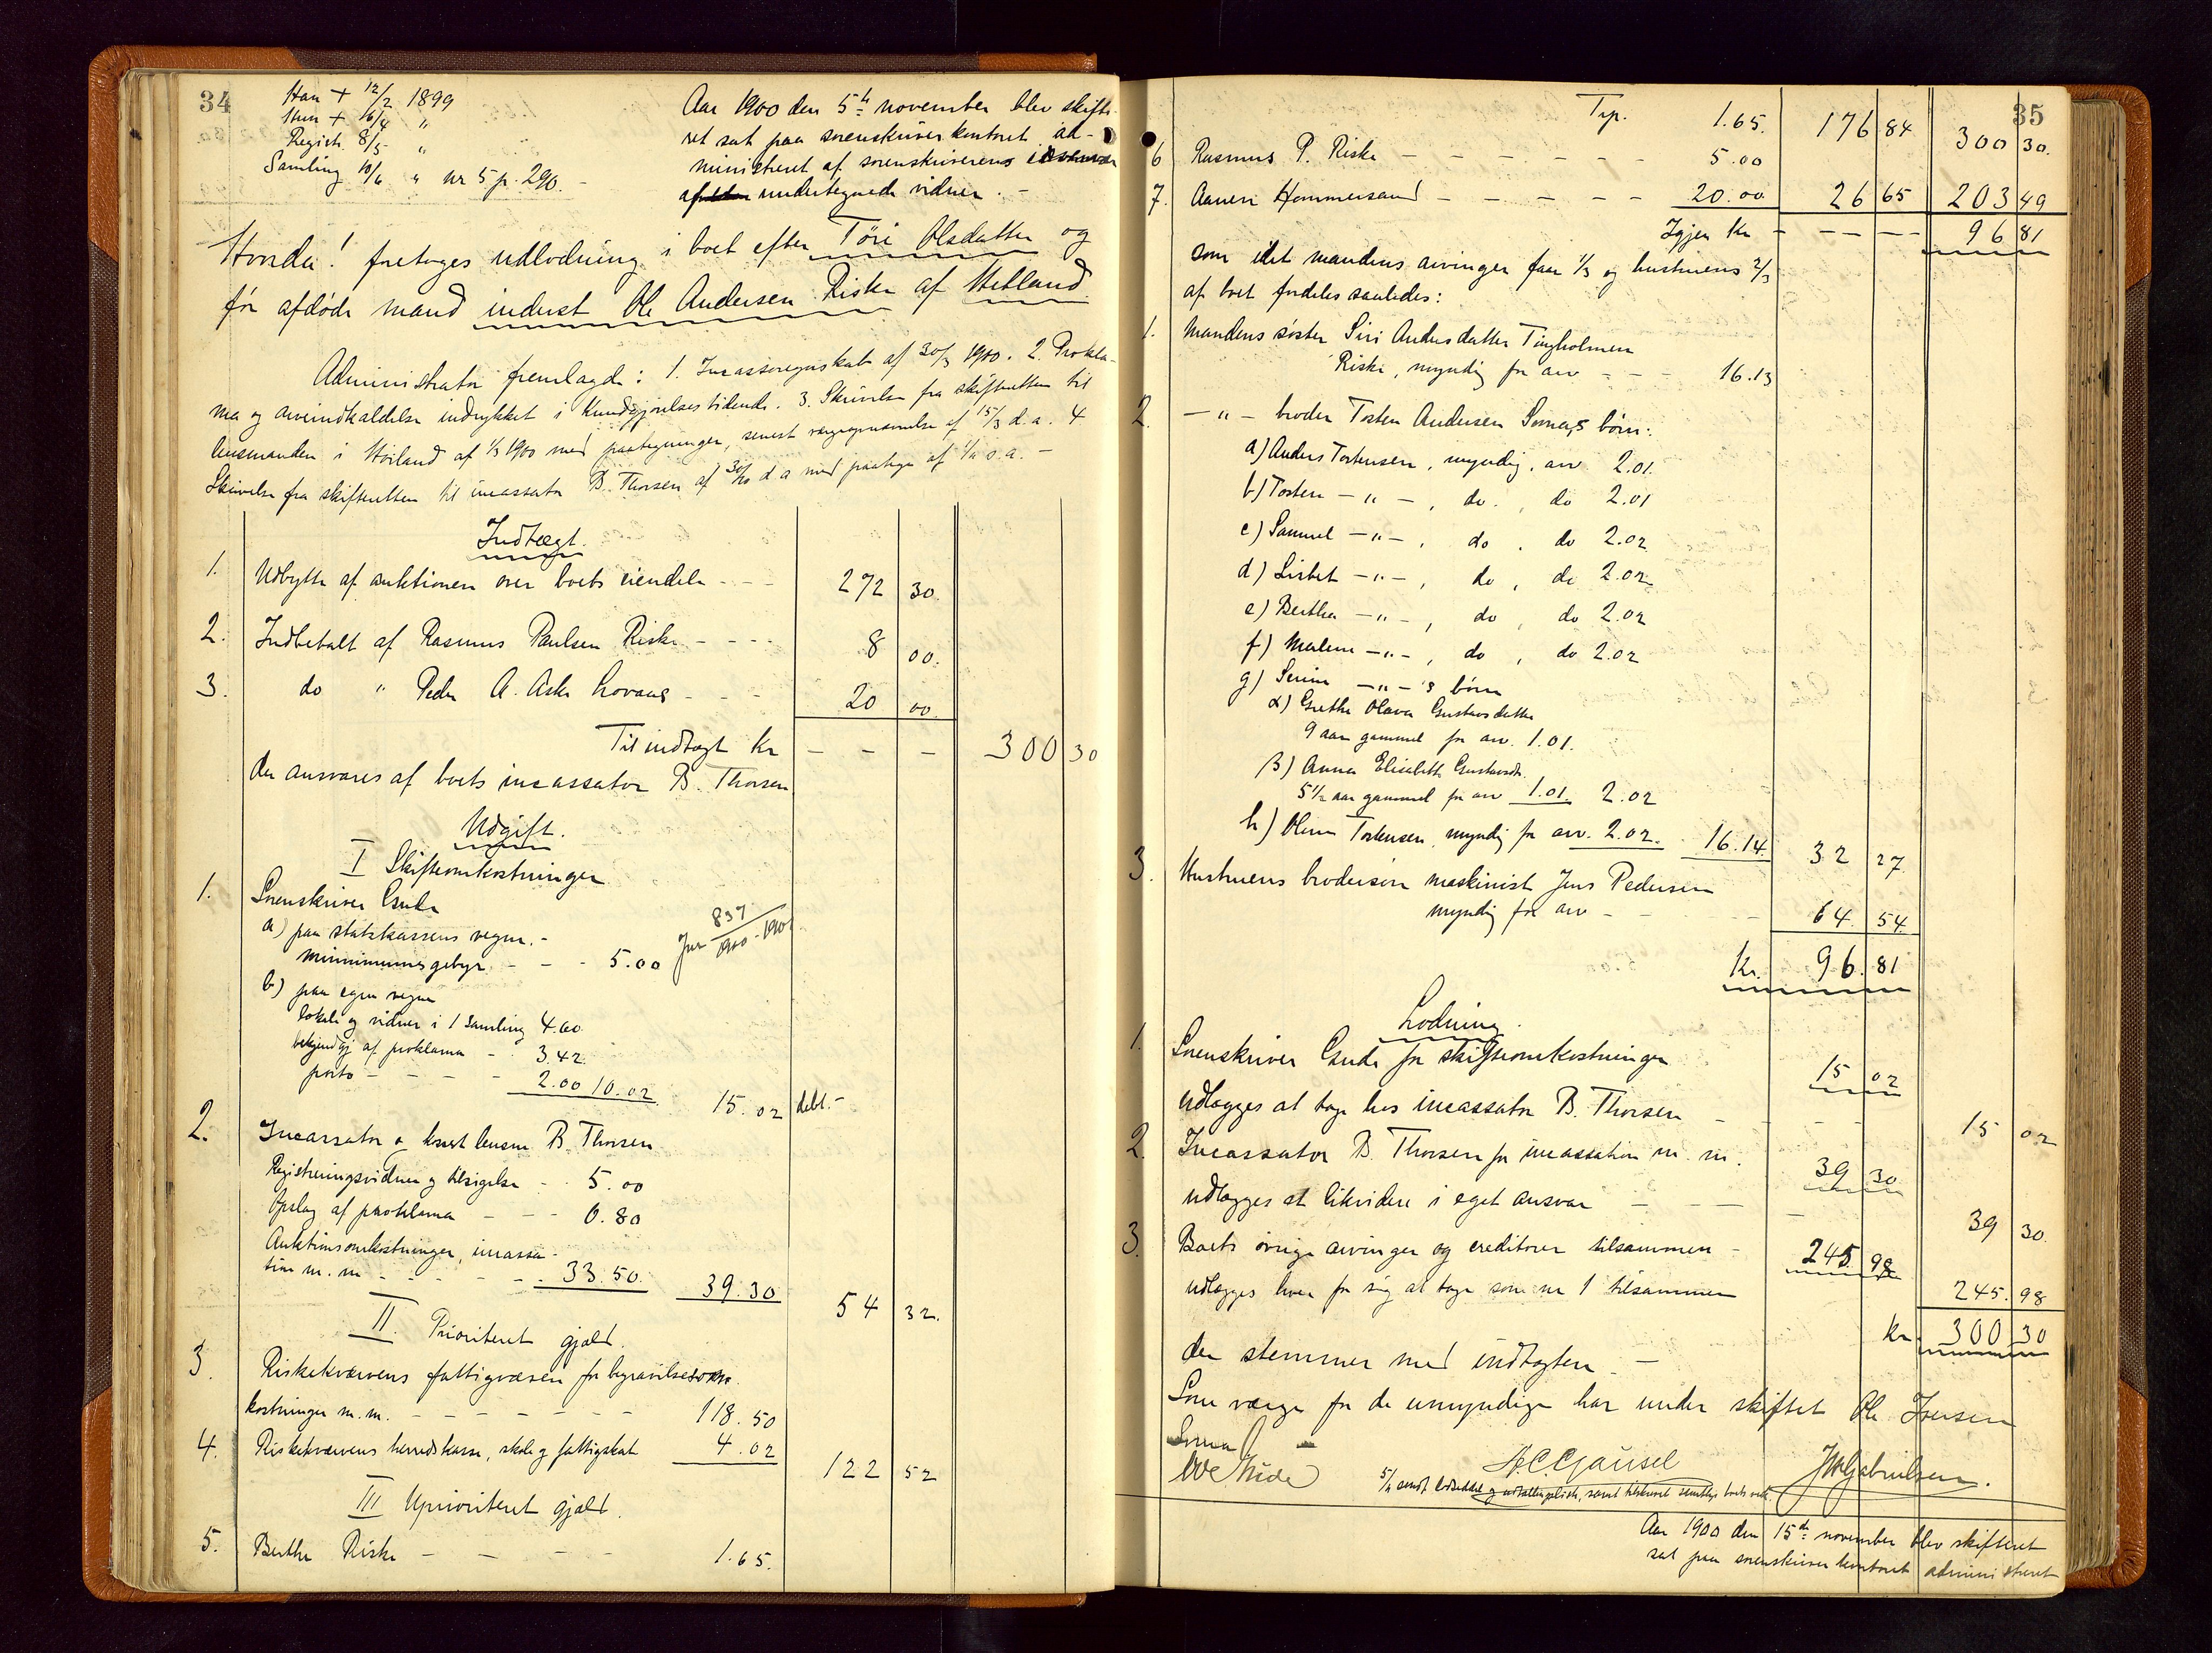 34
Han + 12/2 1899
Hun + 16/4 "
Registr. 8/5 "
Samling 10/6 " nr 5 p. 290. -
Aar 1900 den 5te november blev skifte-
ret sat paa sorenskriverkontoret ad-
ministreret af sorenskriveren
undertegnede vidner. -
Hvorda! foretoges udlodning i boet efter Töri Olsdatter og
før afdøde mand inderst Ole Andersen Riske af Hetland.
Administrator fremlagde: 1. Incassoregnskab af 30/3 1900. 2. Prokla-
ma og arveindkaldelse indrykket i Kundgjørelsestidende. 3. Skrivelse fra skifteretten til
lensmanden i Høiland af 1/3 1900 med paategninger, senest værgeopnævnelse af 15/3 d. a. 4
Skrivelse fra skifteretten til incassator B. Thorsen af 30/10 d a med paategn af 1/11 s. a. -
Indtægt.
1. Udbytte af auktionen over boets eiendele - - - 272 30.
2. Indbetalt af Rasmus Paulsen Riske - - - - 8 00.
3. do " Peder A. Aske Hovane - - - 20 00.
Til indtægt Kr - - - 300 30
der ansvares af boets incassator B. Thorsen
Udgift.
I Skifteomkostninger
1. Sorenskriver Gude
a) paa statskassens vegne. -
minimumsgebyr - - - 5.00 Jnr 837/1900-1901
b) paa egne vegne
lokale og vidner i 1 samling 4.60
bekjendtgj af proklama - - 3.42
porto - - - - 2.00 10.02 15.02 debt. -
2. Incassator o konst lensm B. Thorsen
Registreringsvidner og tilsigelse - - 5.00
Opslag af proklama - - - 0.80
Auktionsomkostninger, incassa-
tion m. m - - - - - 33.50. 39.30 54 32.
II. Prioriteret gjæld.
3. Riskekværvens fattigvæsen for begravelsesom-
kostninger m. m. - - - - - - 118.50
4. Riskekværvens herredskasse, skole og fattigskat 4.02 122 52
III Uprioriteret gjæld.
5. Berthe Riske - - - - 1.65.
35
Trp. 1.65. 176 84 300 30.
6 Rasmus P. Riske - - - - - - - 5.00
7. Aanen Hommersand - - - - - 20.00 26 65 203 49
Igjen Kr - - - - 96 81
som idet mandens arvinger faar 1/3 og hustruens 2/3
af boet fordeles saaledes:
1. Mandens søster Siri Andersdatter Tingholmen
Riske, myndig for arv - - - 16.13
2. - " - broder Tosten Andersen Somas børn:
a) Anders Tostensen, myndig, arv 2.01.
b) Tosten - " - , do. , do 2.01
c) Samuel - " - , do , do 2.02
d) Lisbet - " - , do , do 2.02
e) Berthe - " - , do , do 2.02
f) Malene - " - , do , do 2.02
g) Serine - " - 's børn
α) Grethe Olava Gustavsdatter
9 aar gammel for arv. 1.01.
β) Anna Elisabeth Gustavsdtr.
5 1/2 aar gammel for arv 1.01. 2.02
h) Olene Tostensen, myndig for arv. 2.02. 16.14 32 27.
3. Hustruens brodersøn maskinist Jens Pedersen
myndig for arv - - - 64. 54
Kr. 96. 81
Lodning.
1. Sorenskriver Gude for skifteomkostninger 15 02
udlægges at tage hos incassator B. Thorsen - - - - 15 02
2. Incassator B. Thorsen for incassation m. m. 39 30
udlægges at likvidere i eget ansvar - - - - 39 30.
3. Boets øvrige arvinger og creditorer tilsammen - 245 98
udlægges hver for sig at tage som nr 1 tilsammen 245. 98
Kr. 300 30
der stemmer med indtægten -
Som værge for de umyndige har under skiftet Ole Iversen
Soma
Ove Gude A.C. Gausel J.M. Gabrielsen.
5/11 sendt lodseddel og udskrift
Aar 1900 den 15de november blev skifteret
sat paa sorenskriverkontoret administreret